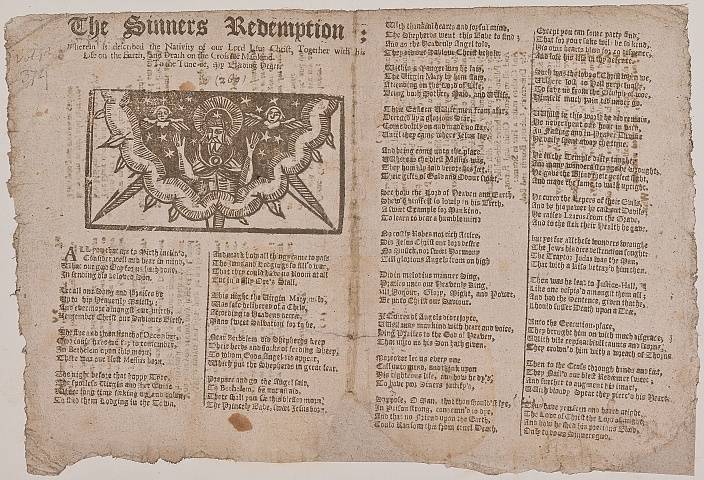 The Sinners Redemption ;
Wherein is described the Nativity of our Lord Jesus Christ, Together with his
Life on the Earth, and Death on the Cross for Mankind.
To the Tune of, My Bleeding Heart
ALL you that are to Mirth inclin'd,
Consider well and bear in mind,
What our good God for us hath done,
In sending his beloved Son.
Let all our Songs and Praises be
Unto his Heavenly Majesty;
And evermore amongst our mirth,
Remember Christ our Saviours Birth.
The five and twentieth of December,
Good cause have we to remember,
In Bethelem upon this morn,
There was our blest Messias born.
The night before that happy Tyde,
The spotless Virgin and her Guide
Were long time seeking up and down,
To find them Lodging in the Town.
And mark how all things came to pass
The Inns and Lodgings so fill'd was,
That they could have no Room at all
But in a silly Oxe's Stall.
This night the Virgin Mary mild,
Was safe delivered of a Child,
According to Heavens decree,
Mans sweet Salvation for to be.
Near Bethelem did Shepherds keep
Their herds and flocks of feeding Sheep;
To whom Gods Angel did appear,
Which put the Shepherds in great fear.
Prepare and go the Angel said,
To Bethelem, be not afraid,
There shall you see this blessed morn,
The Princely Babe, sweet Jesus born.
With thankful heart and joyful mind,
The Shepherds went this Babe to find;
And as the Heavenly Angel told,
They did our Saviour Christ behold.
Within a Manger was he laid,
The Virgin Mary by him staid,
Attending on the Lord of Life,
Being both Mother, Maid, and Wife.
Three Eastern Wise-men from afar,
Directed by a glorious Star,
Came boldly on and made no stay,
Until they came where Jesus lay.
And being come unto the place,
Whereas the blest Messias was,
They humbly laid before his feet,
Their gifts of Gold and Odours sweet.
See how the Lord of Heaven and Earth,
Shew'd himself so lowly in his Birth,
A sweet Example for Mankind,
To learn to bear a humble mind
No costly Robes nor rich Attire,
Did Jesus Christ our Lord desire
No Musick, nor sweet Harmony
Till glorious Angels from on high
Did in melodius manner sing,
Praises unto our Heavenly King,
All Honour, Glory, Might, and Power,
Be unto Christ our Saviour.
If Quires of Angels did rejoyce,
Well may mankind with heart and voice,
Sing Praises to the God of Heaven,
That unto us his Son hath given.
Moreover let us every one
Call unto mind, and think upon
His righteous life, and how he dy'd,
To have poor Sinners justify'd.
Suppose, O Man, that thou should'st lye,
In Prison strong, condemn'd to dye,
And that no Friend upon the Earth,
Could Ransom thee from cruel Death.
Except you can some party find,
That for your sake will be so kind,
His own hearts blood for to dispence,
And lose his life in thy defence.
Such was the love of Christ when we
Were lost
To save us from the
Himself much pain did undergo.
Whilst in this world he did remain,
He never spent one hour in vain,
In Fasting and in Prayer Divine
He daily spent away the time.
He in the Temple daily taught,
And many wonders strange he wrought,
He gave the Blind their perfect sight,
And made the lame to walk upright.
He cured the Lepers of their Evils,
And by his power he cast out Devils;
He raised Lazarus from the Grave,
And to the sick their Health he gave.
But yet for all these wonders wrought
The Jews his dire destruction sought:
The Traytor Judas was the Man,
That with a kiss betray'd him then.
Then was he lead to Justice-Hall,
Like one despis'd amongst them all;
And had the Sentence given that he,
Should suffer Death upon a Tree.
Unto the Execution-place,
They brought him on with much disgrace;
With vile reproachful taunts and scorns,
They crown'd him with a wreath of Thorns.
Then to the Cross through hands and feet,
They Nail'd our blest Redeemer sweet;
And further to augment his smart,
With bloody Spear they pierc'd his Heart.
Thus have you seen and heard aright,
The Love of Christ the Lord of might,
And how he shed his precious Blood,
Only to do us Sinners good.